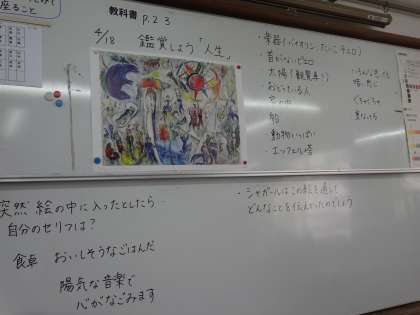 座ること
教科書 P.23
4/18 鑑賞しよう「人生」
・楽器(バイオリン・たいこ・チェロ)
・首がないピエロ
・太陽(観覧車?)
・おどっている人
・動物いっぱい
・エッフェル塔
・いろんな色
暗い
ぐちゃぐちゃ
突然 絵の中に入ったとしたら…
自分のセリフは?
食卓 おいしそうなごはんだ
陽気な音楽で
心がなごみます
・シャガールはこの絵を通して
どんなことを伝えたかったのでしょう